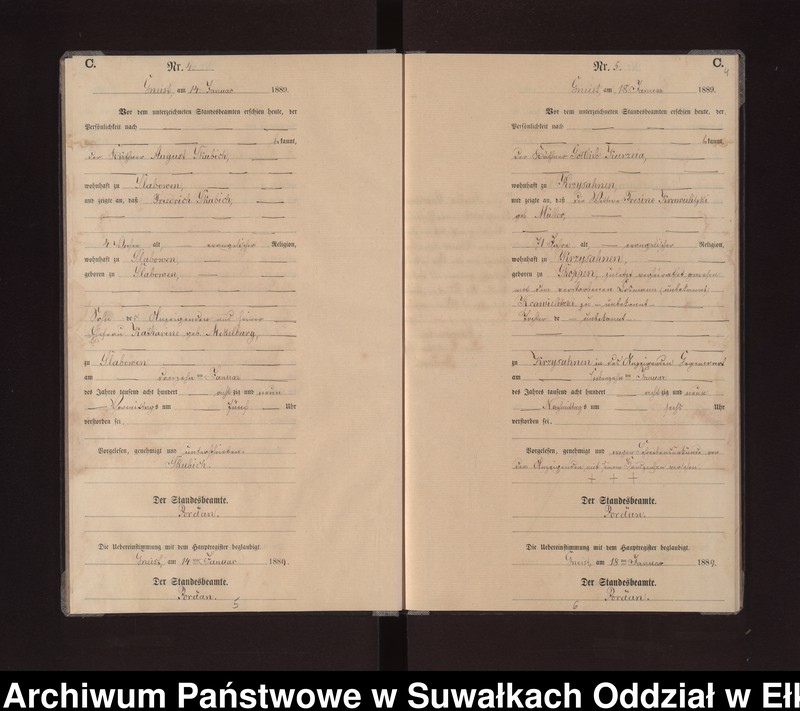 C.
Nr. 4.
am 14 Januar 1889.
Vor dem unterzeichneten Standesbeamten erschien heute, der
Persönlichkeit nach
bekannt,
der August Skubich,
wohnhaft zu Slabowen,
und zeigte an, daß Friedrich Skubich,
4 alt evangelischer Religion,
wohnhaft zu Slabowen,
geboren zu Slabowen,
Sohn des Anzeigenden und seiner
Ehefrau Katharine geb.
zu Slabowen
am Januar
des Jahres tausend acht hundert achtzig und neun
Vormittags um fünf Uhr
verstorben sei
Vorgelesen, genehmigt und unterschrieben.
Skubich.
Der Standesbeamte.
Pordan.
Die Uebereinstimmung mit dem Hauptregister beglaubigt.
am 14 ten Januar 1889.
Der Standesbeamte.
Pordan.
5
C.
Nr. 5.
4
am 18 Januar 1889.
Vor dem unterzeichneten Standesbeamten erschien heute, der
Persönlichkeit nach
bekannt,
der Gottlieb
wohnhaft zu Krzysahnen,
und zeigte an, daß die Wittwe
geb. Müller,
71 Jahre alt evangelischer Religion,
wohnhaft zu Krzysahnen,
geboren zu zuletzt verheirathet gewesen
mit dem verstorbenen Losmann, unbekannt
zu unbekannt
Tochter der unbekannt
zu Krzysahnen in des Anzeigenden Gegenwart
am siebzehn ten Januar
des Jahres tausend acht hundert achtzig und neun
Nachmittags um Uhr
verstorben sei.
Vorgelesen, genehmigt und wegen Schreibensunkunde von
dem Anzeigenden mit seinem Handzeichen versehen
+ + +
Der Standesbeamte.
Pordan.
Die Uebereinstimmung mit dem Hauptregister beglaubigt.
am 18 ten Januar 1889.
Der Standesbeamte.
Pordan.
6
Archiwum Państwowe w Suwałkach Oddział w Ełk